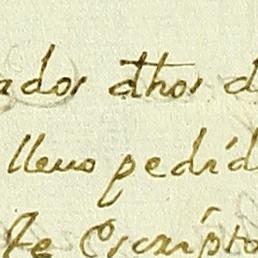 ados dhos d
lleno pedrid
te Escripto